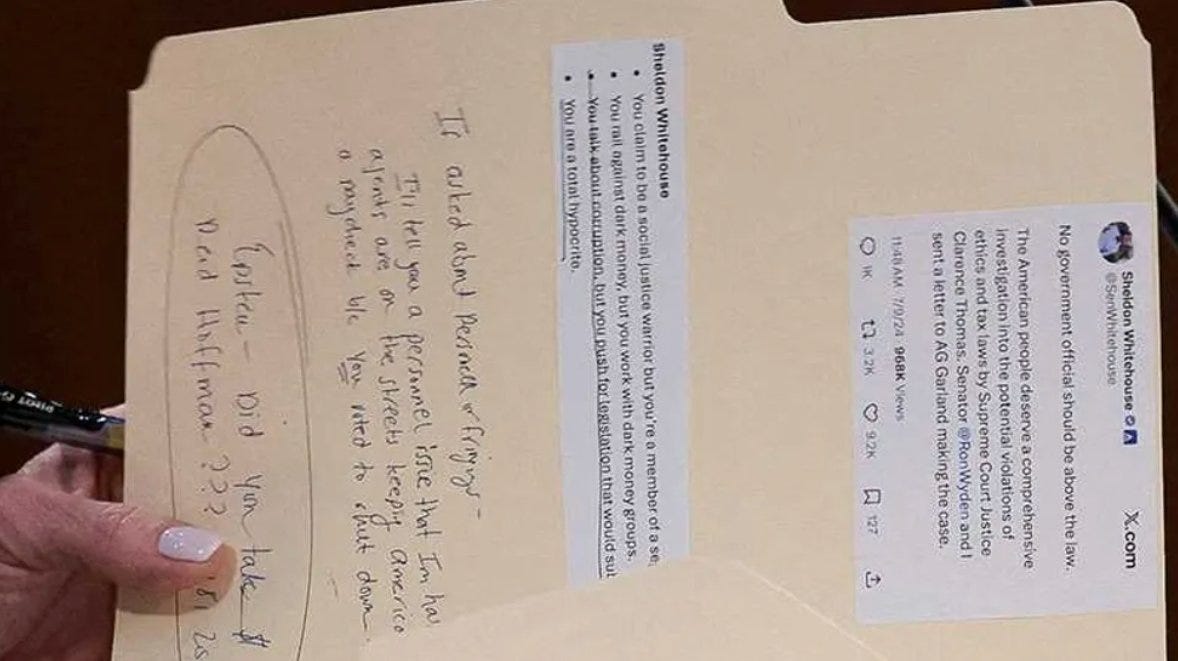 X.com
Sheldon Whitehouse
@SenWhitehouse
No government official should be above the law.
The American people deserve a comprehensive
investigation into the potential violations of
ethics and tax laws by Supreme Court Justice
Clarence Thomas. Senator @RonWyden and I
sent a letter to AG Garland making the case.
11:48 AM · 7/9/24 968K Views
1K 3.2K 9.2K 127
Sheldon Whitehouse
• You claim to be a social justice warrior but you're a member of a se
• You rail against dark money, but you work with dark money groups.
• You talk about corruption, but you push for legislation that would sub
• You are a total hypocrite.
If asked about Personell or firings -
I'll tell you a personnel issue that I'm hav
agents are on the streets keeping America
a paycheck b/c you voted to shut down.
Epstein - Did you take $
Reid Hoffman???
PILOT